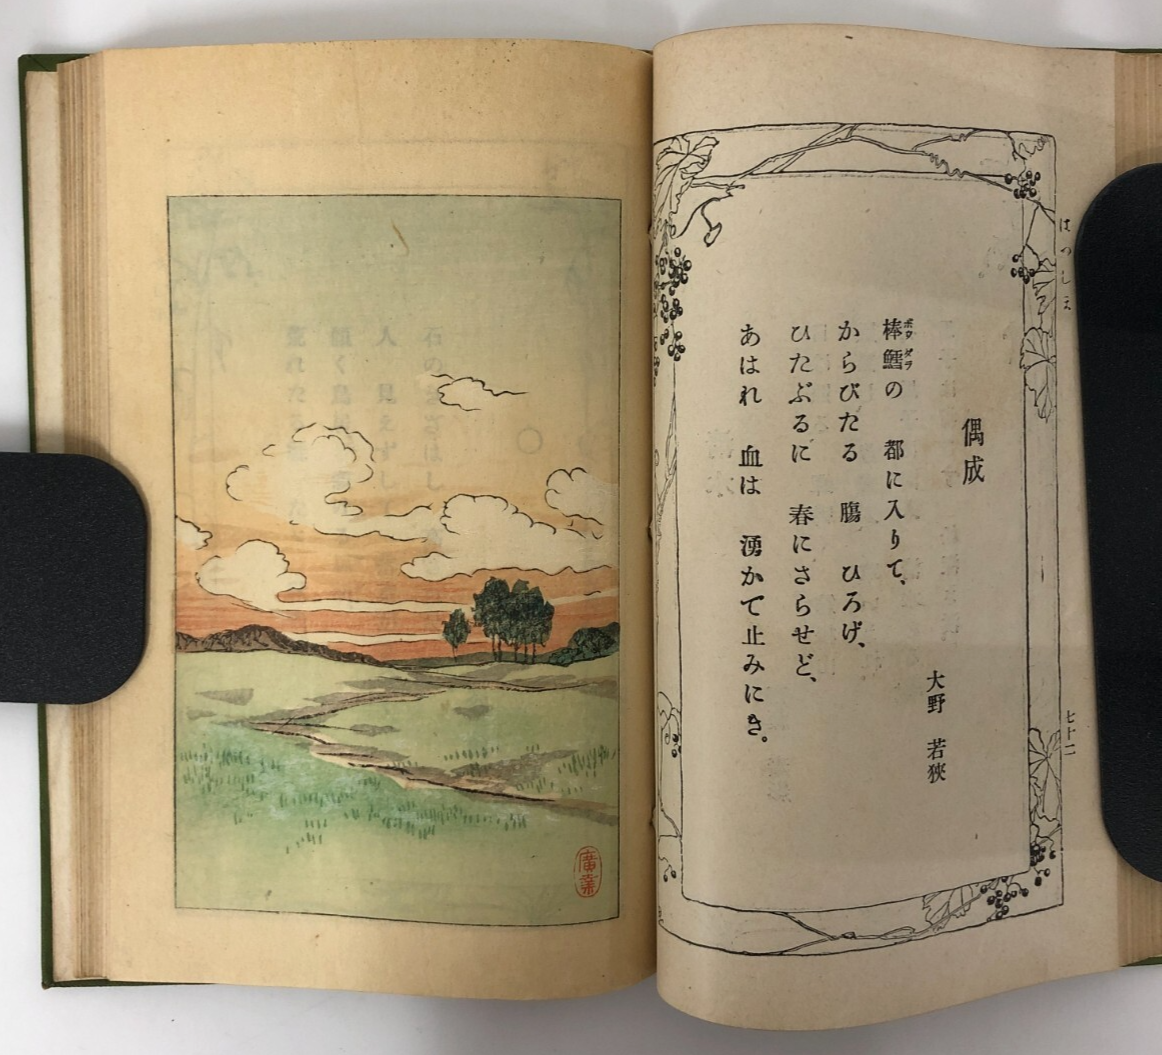 はつしえ
七十一
偶成
大野 若狹
棒鱈の 都に入りて、
ボウ ダラ
からびたる 膓 ひろげ、
ひたぶるに 春にさらせど、
あはれ 血は 湧かで止みにき。
廣業